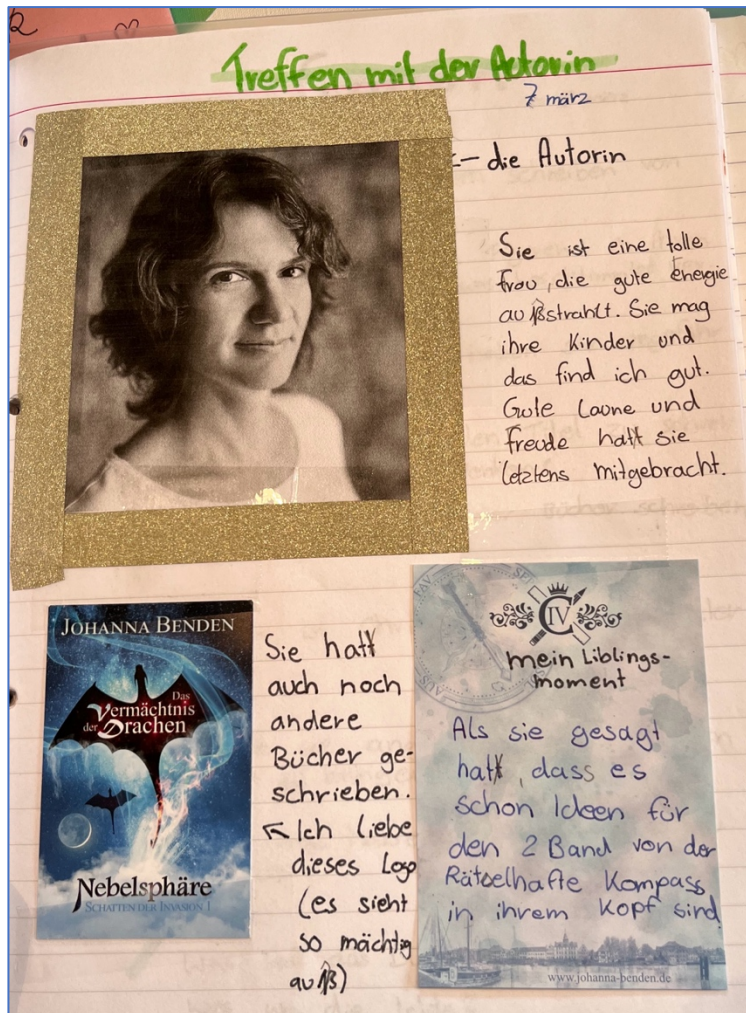 Treffen mit der Actorin
7 märz
← die Autorin
Sie ist eine tolle
frau, die gute energie
außstrahlt. Sie mag
ihre Kinder und
das find ich gut.
Gute Laune und
freude hatt sie
letztens mitgebracht.
JOHANNA BENDEN
Das
Vermächtnis
der Drachen
Nebelsphäre
SCHATTEN DER INVASION 1
Sie hatt
auch noch
andere
Bücher ge-
schrieben.
↖ Ich liebe
dieses Logo
(es sieht
so mächtig
auß)
CIV
mein Liblings-
moment
Als sie gesagt
hatt, dass es
schon Ideen für
den 2 Band von der
Rätselhafte Kompass
in ihrem Kopf sind
www.johanna-benden.de